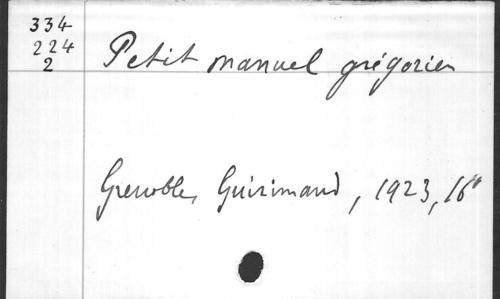 334
224
2
Petit manuel grégorien
Grenoble, Guirimand, 1923, 16°